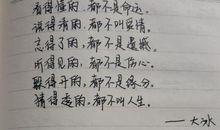 看得懂的，都不是命运。
说得清的，都不叫爱情。
忘得了的，都不是遗憾。
听得见的，都不是伤心。
躲得开的，都不是缘分。
猜得透的，都不叫人生。
——大冰